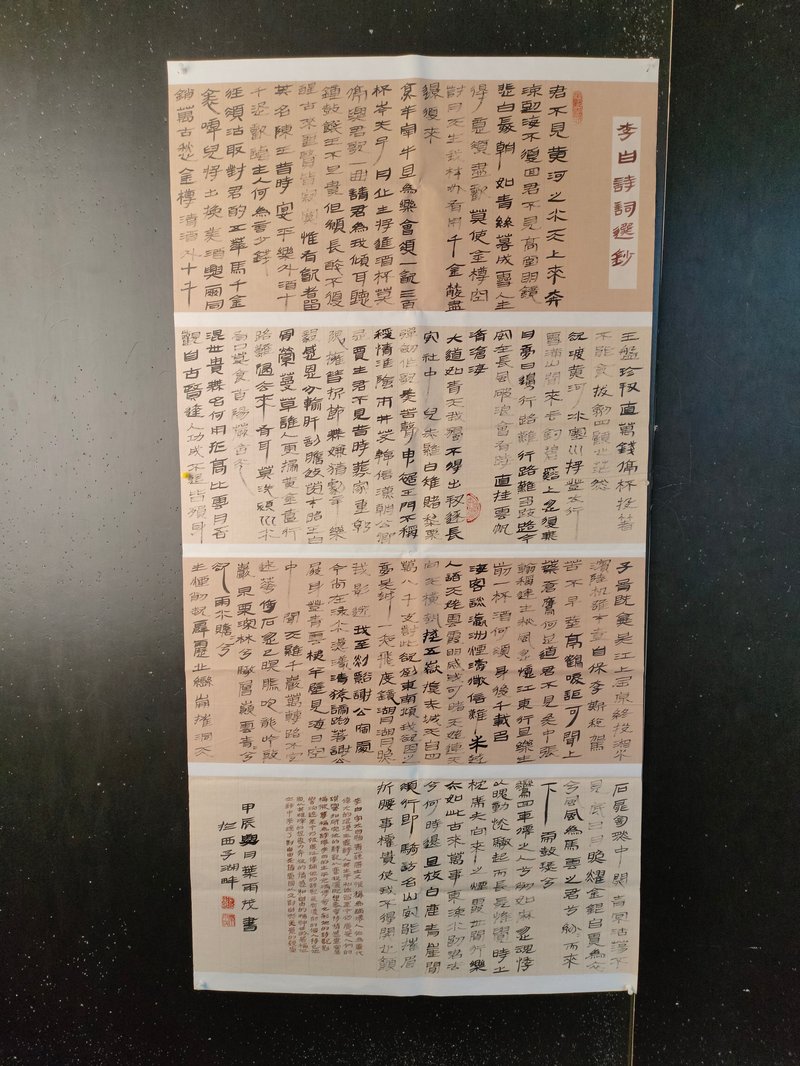 李白詩詞選鈔
君不見黃河之水天上來奔
流到海不復回君不見高堂明鏡
悲白髮朝如青絲暮成雪人生
得意須盡歡莫使金樽空
對月天生我材必有用千金散盡
還復來
烹羊宰牛且為樂會須一飲三百
杯岑夫子丹丘生將進酒杯莫
停與君歌一曲請君為我傾耳聽
鐘鼓饌玉不足貴但願長醉不復
醒古來聖賢皆寂寞惟有飲者留
其名陳王昔時宴平樂斗酒十
千恣歡謔主人何為言少錢
徑須沽取對君酌五華馬千金
裘呼兒將出換美酒與爾同
銷萬古愁金樽清酒斗十千
玉盤珍羞直萬錢停杯投箸
不能食拔劍四顧心茫然
欲渡黃河冰塞川將登太行
雪滿山閒來垂釣碧谿上忽復乘
舟夢日邊行路難行路難多歧路今
安在長風破浪會有時直挂雲帆
濟滄海
大道如青天我獨不得出羞逐長
安社中兒赤雞白雉賭梨栗
彈劍作歌奏苦聲曳裾王門不稱
情淮陰市井笑韓信漢朝公卿
忌賈生君不見昔時燕家重郭
隗擁篲折節無嫌猜劇辛樂
毅感恩分輸肝剖膽效英才昭王白
骨縈蔓草誰人更掃黃金臺行
路難歸去來有耳莫洗潁川水
有口莫食首陽蕨含光
混世貴無名何用孤高比雲月吾
觀自古賢達人功成不退皆殞身
子胥既棄吳江上屈原終投湘水
濱陸機雄才豈自保李斯稅駕
苦不早華亭鶴唳詎可聞上
蔡蒼鷹何足道君不見吳中張
翰稱達士秋風忽憶江東行且樂生
前一杯酒何須身後千載名
海客談瀛洲煙濤微茫信難求越
人語天姥雲霞明滅或可睹天姥連天
向天橫勢拔五嶽掩赤城天台四
萬八千丈對此欲倒東南傾我欲因之
夢吳越一夜飛度鏡湖月湖月照
我影送我至剡谿謝公宿處
今尚在淥水蕩漾清猿啼腳著謝公
屐身登青雲梯半壁見海日空
中聞天雞千巖萬轉路不定
迷花倚石忽已暝熊咆龍吟殷
巖泉栗深林兮驚層巔雲青青兮
欲雨水澹兮
生煙列缺霹靂丘巒崩摧洞天
石扉訇然中開青冥浩蕩不
見底日月照耀金銀臺霓為衣
兮風為馬雲之君兮紛而來
下虎鼓瑟兮
鸞回車仙之人兮列如麻忽魂悸
以魄動怳驚起而長嗟惟覺時之
枕席失向來之煙霞世間行樂
亦如此古來萬事東流水別君去
兮何時還且放白鹿青崖間
須行即騎訪名山安能摧眉
折腰事權貴使我不得開心顏
李白字太白號青蓮居士又被稱為謫僊人
甲辰與月葉雨茂書
於西子湖畔